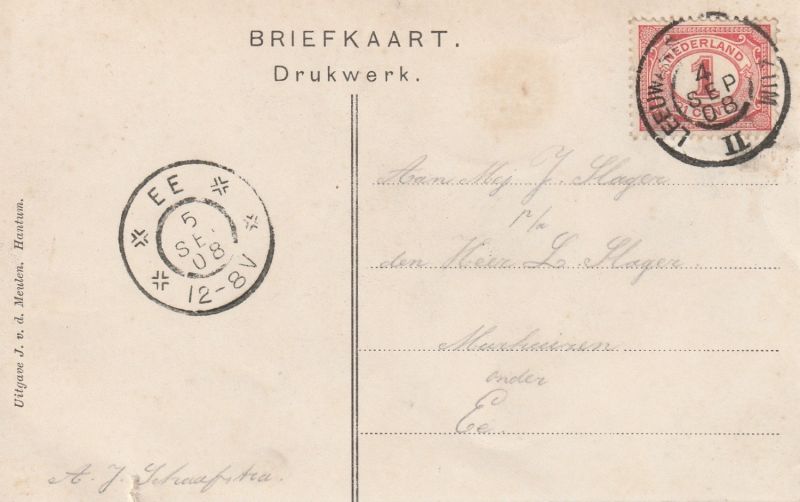 BRIEFKAART.
Drukwerk.
NEDERLAND
1
4
SEP
08
II
EE
5
SE.
08
12-8V
Aan Mej J. Slager
p/a
den Heer L. Slager
onder
Ee
Uitgave J. v. d. Meulen, Hantum.
A. J. Schaafstra.